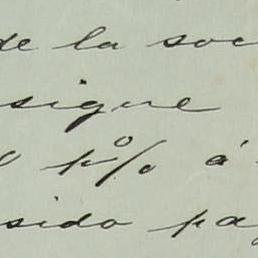 de la soc
sigue
p% á
sido pa